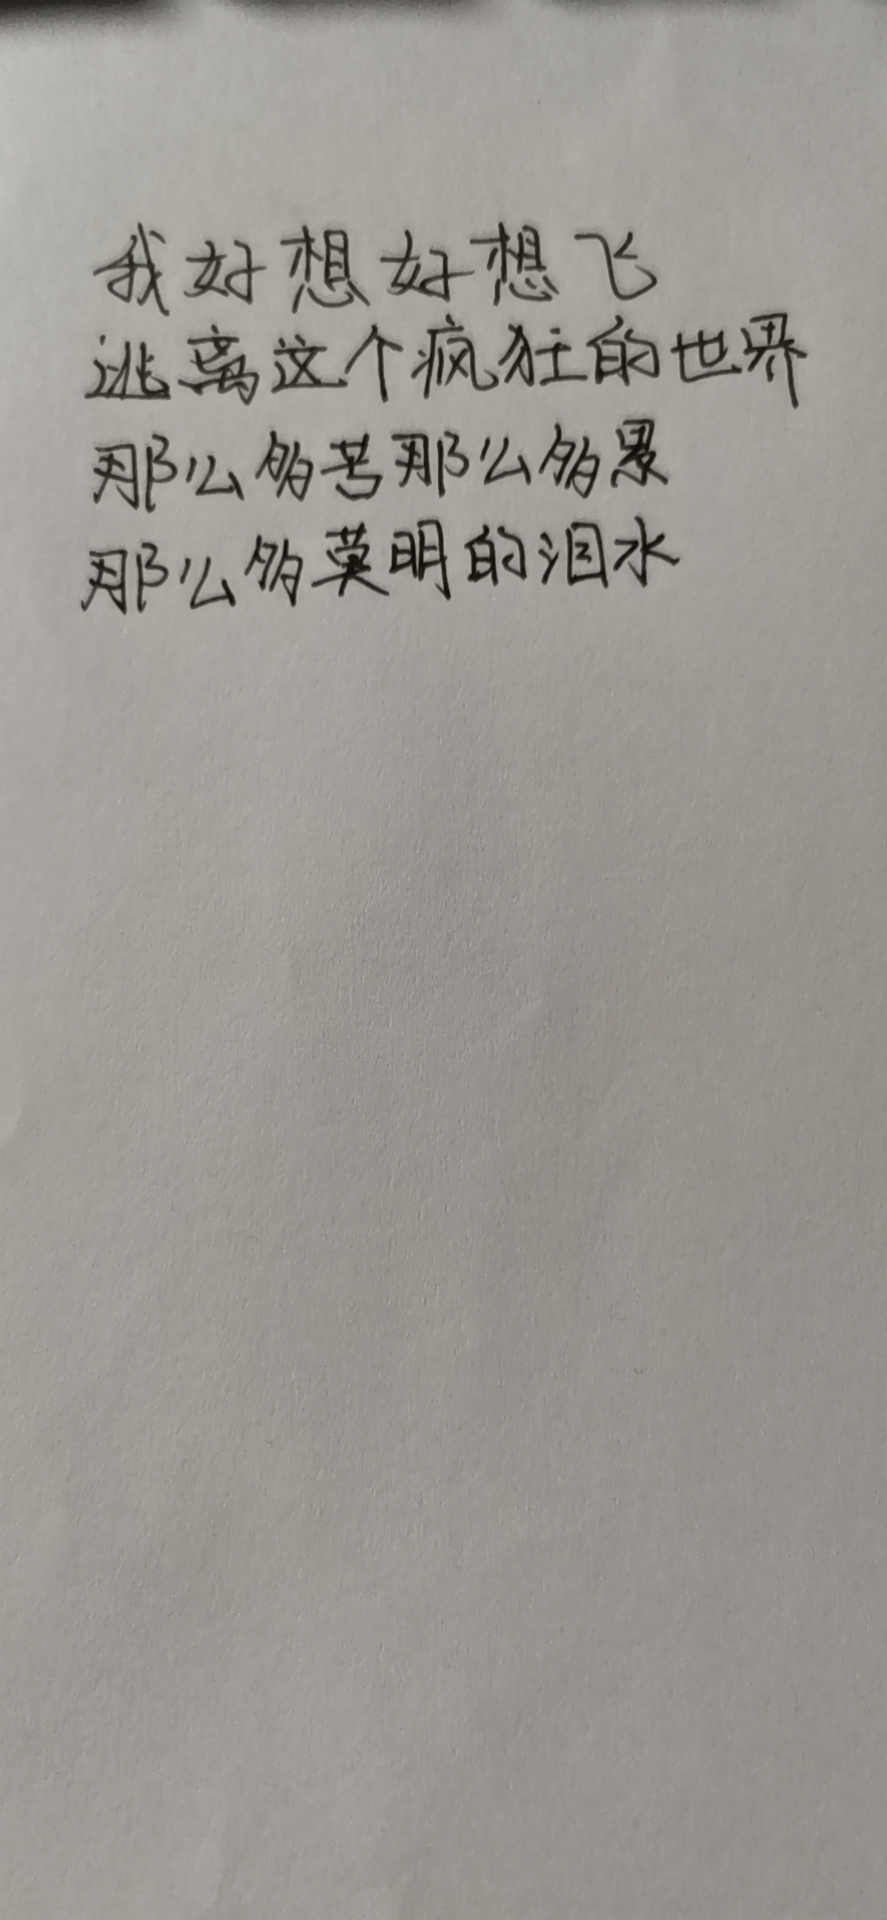 我好想好想飞
逃离这个疯狂的世界
那么多苦那么多累
那么多莫明的泪水